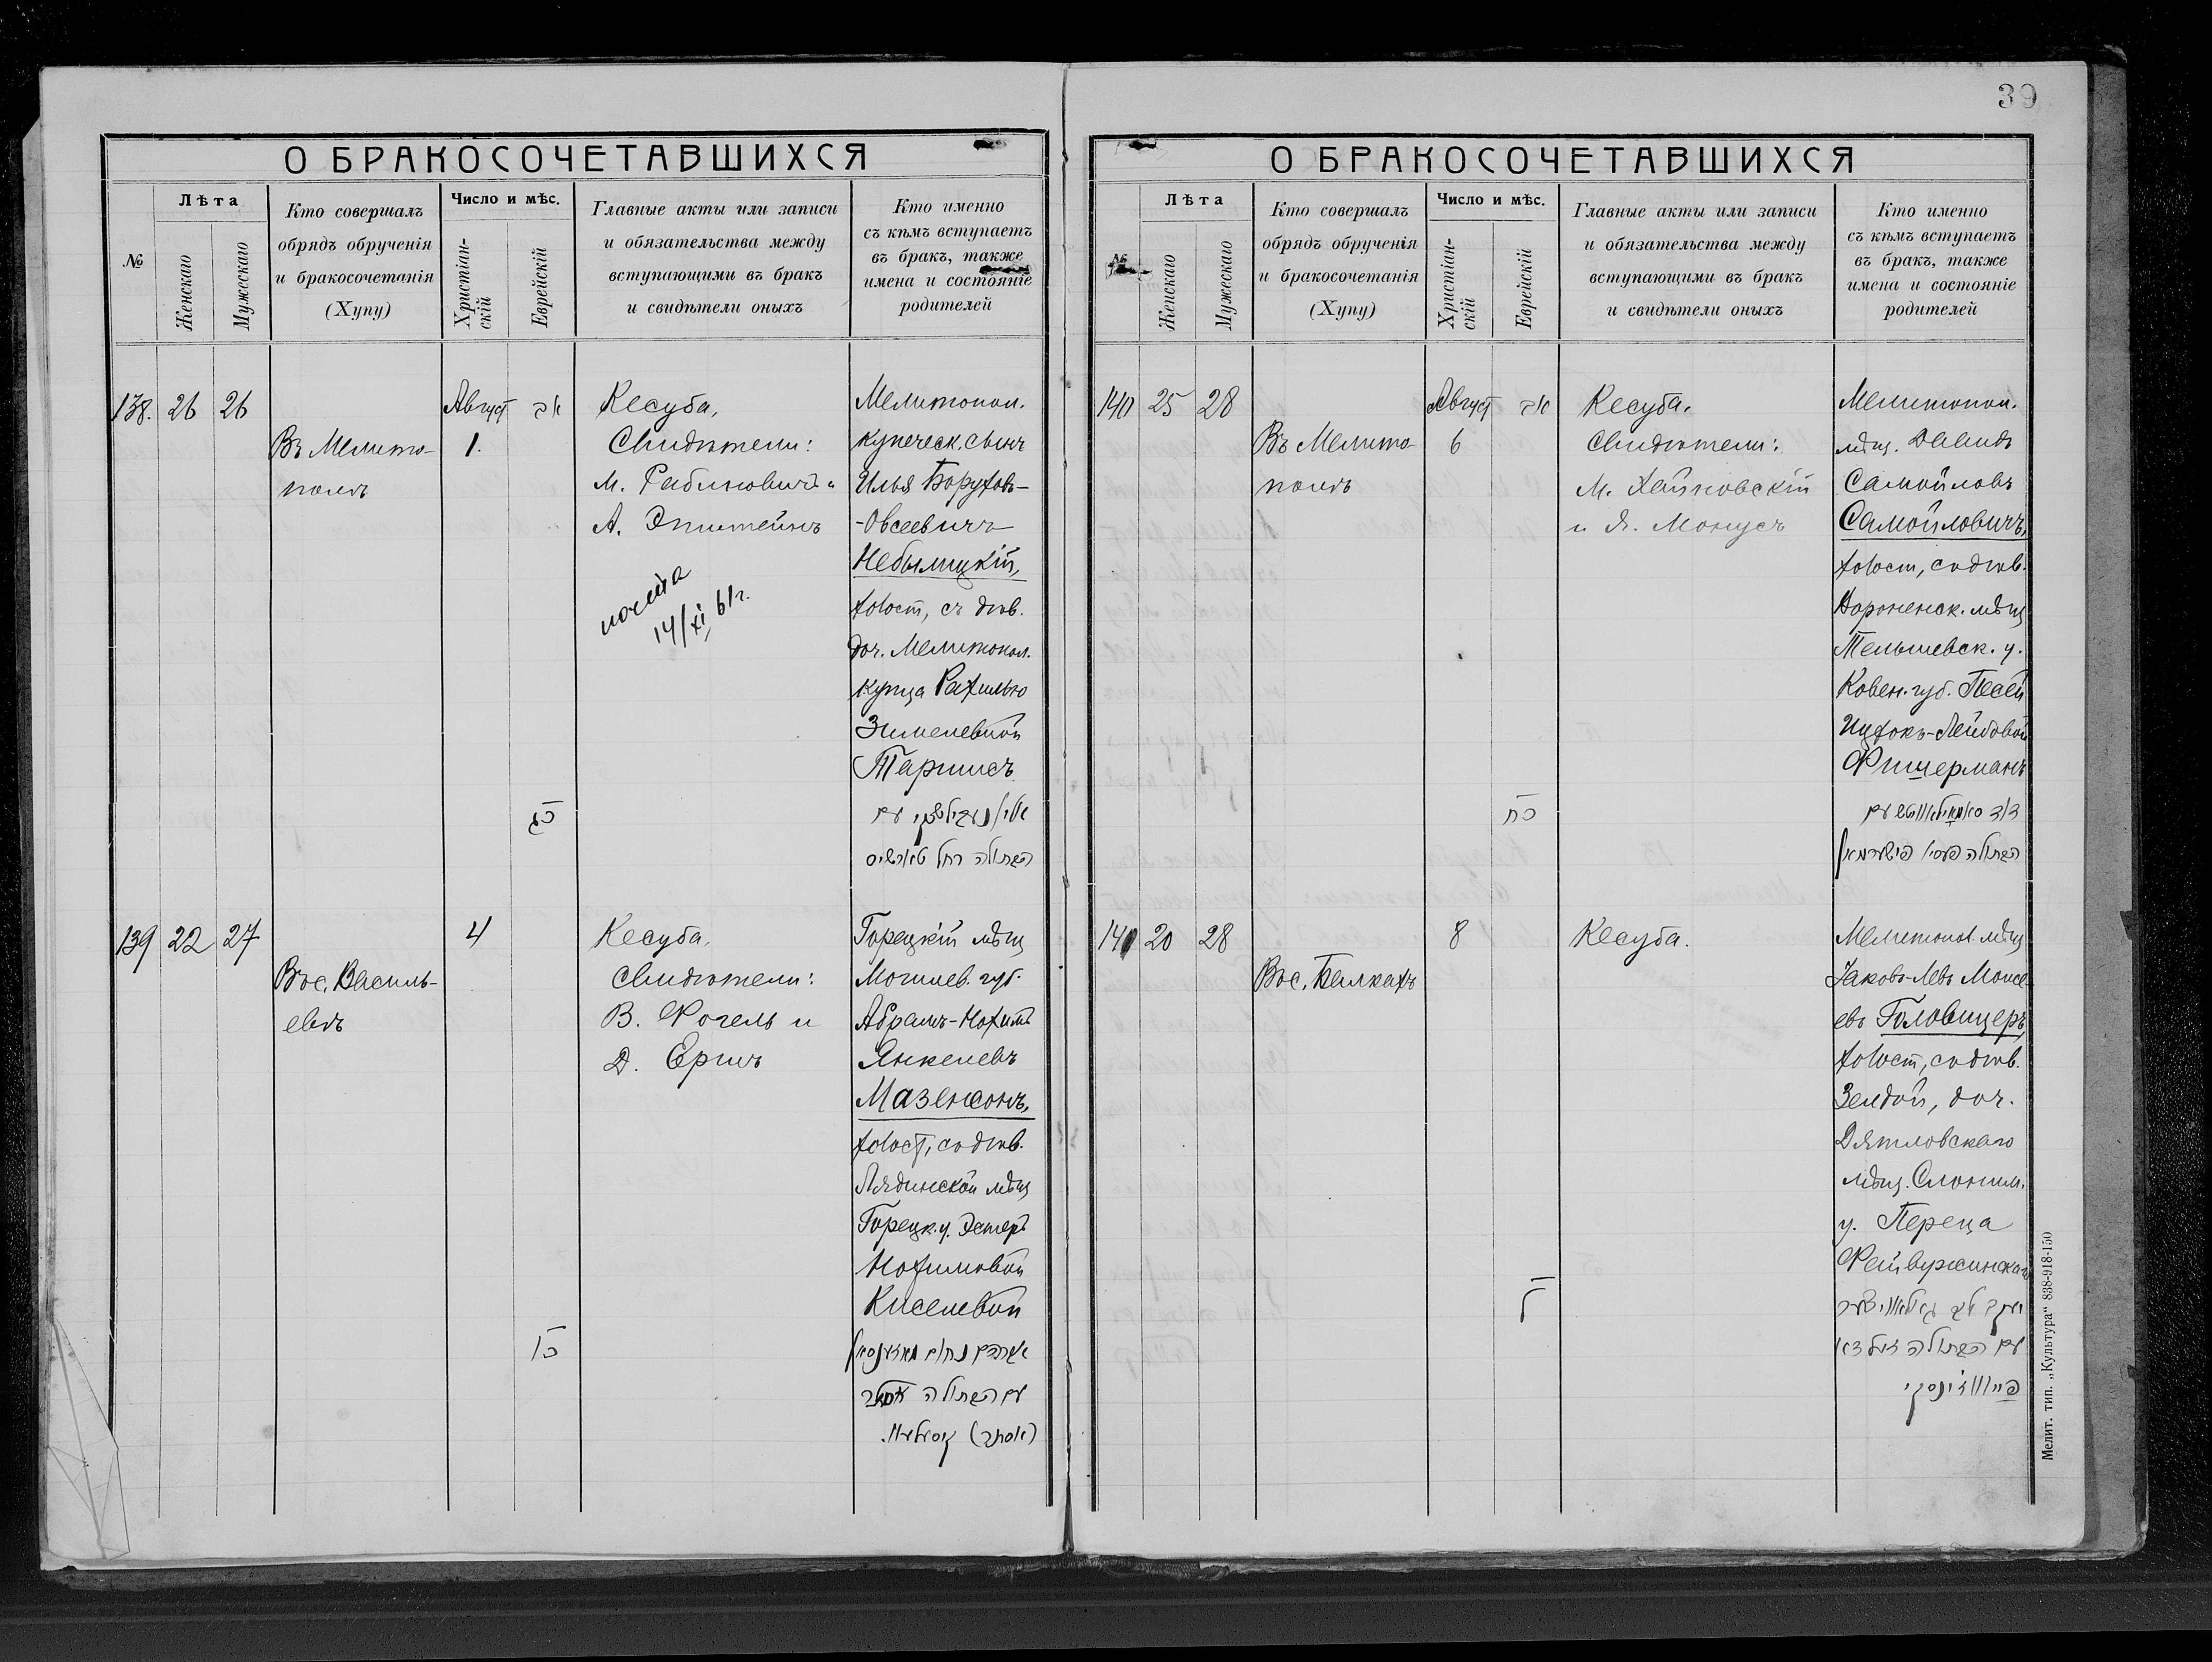 39
О БРАКОСОЧЕТАВШИХСЯ
№
Лѣта
Женскаго
Мужескаго
Кто совершалъ
обрядъ обрученія
и бракосочетанія
(Хупу)
Число и мѣс.
Христіан-
скій
Еврейскій
Главные акты или записи
и обязательства между
вступающими въ бракъ
и свидѣтели оныхъ
Кто именно
съ кѣмъ вступаетъ
въ бракъ, также
имена и состояніе
родителей
138. 26 26
Въ Мелито-
полѣ
Август
1.
אב
כג
Кесуба,
Свидѣтели:
М. Рабиновичъ и
А. Эпштейнъ
14/XI 61г.
Мелитопол.
купеческ. сынъ
Илья Боруховъ-
-Овсеевичъ
Небылицкій,
холост, съ дѣв.
доч. Мелитопол.
купца Рахилью
Зимелевной
Таршисъ
אלי' נעבילצקי עם
הבתולה רחל טארשיס
139 22 27
Въ с. Василь-
евкѣ
4
כו
Кесуба.
Свидѣтели:
В. Фогель и
Д. Ершъ
Горецкій мѣщ
Могилев. губ.
Абрамъ-Нохимъ
Янкелевъ
Мазенсонъ,
холост, съ дѣв.
Лядинской мѣщ
Горецк. у. Эстеръ
Нохимовой
Киселевой
אברהם נחום מאזענסאן
עם הבתולה אסתר
(אסתר) קיסעלאוו.
О БРАКОСОЧЕТАВШИХСЯ
№
Лѣта
Женскаго
Мужескаго
Кто совершалъ
обрядъ обрученія
и бракосочетанія
(Хупу)
Число и мѣс.
Христіан-
скій
Еврейскій
Главные акты или записи
и обязательства между
вступающими въ бракъ
и свидѣтели оныхъ
Кто именно
съ кѣмъ вступаетъ
въ бракъ, также
имена и состояніе
родителей
140 25 28
Въ Мелито-
полѣ
Август
6
אב
כח
Кесуба.
Свидѣтели:
М. Хайновскій
и Я. Монусъ
Мелитопол.
мѣщ. Давидъ
Самойловъ
Самойловичъ,
холост, съ дѣв.
Ворненск. мѣщ
Тельшевск. у.
Ковен. губ. Песей
Ицхокъ-Лейбовой
Фишерманъ
דוד סאמוילאוויטש עם
הבתולה פעסי' פישערמאן
140 20 28
Въ с. Балкахъ
8
ל
Кесуба.
Мелитопол. мѣщ
Іаковъ-Левъ Моисе-
евъ Головчинеръ,
холост, съ дѣв.
Зелдой, доч.
Дятловскаго
мѣщ. Слоним.
у. Переца
Фейвужинскаго
יעקב ליב
עם הבתולה זעלדא
פייוווזינסקי
Мелит. тип. „Культура“ 838-918-150